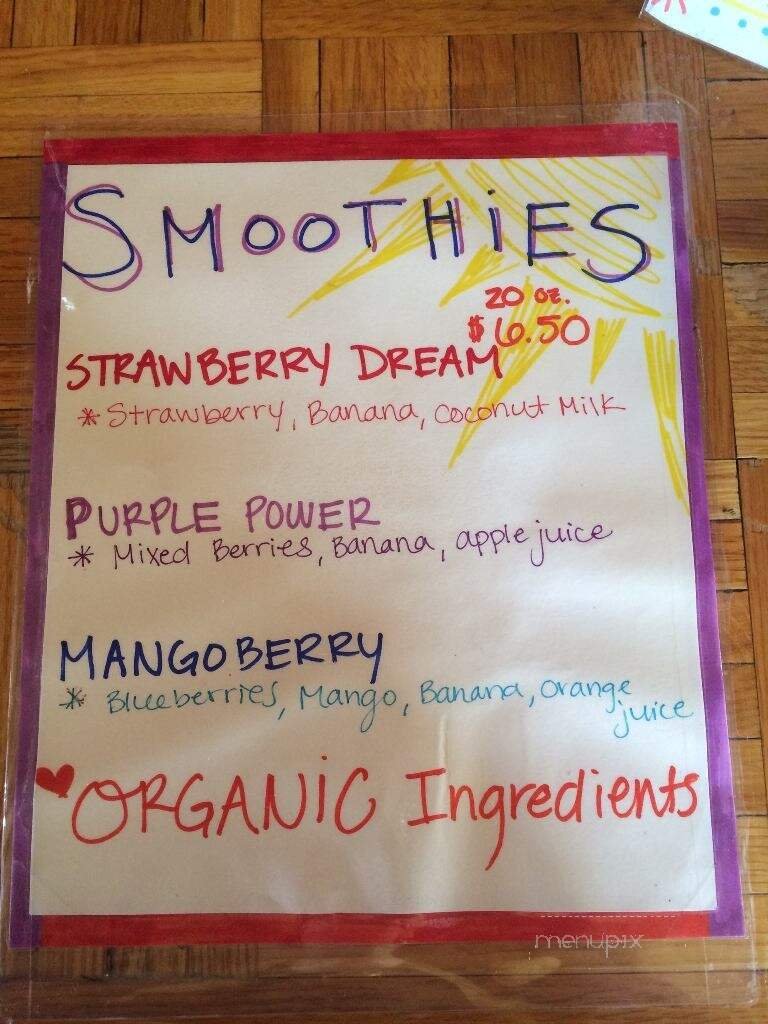 SMOOTHiES
20 oz.
$6.50
STRAWBERRY DREAM
* Strawberry, Banana, coconut Milk
PURPLE POWER
* Mixed Berries, Banana, apple juice
MANGOBERRY
* Blueberries, Mango, Banana, orange
juice
♥ORGANiC Ingredients
menupix